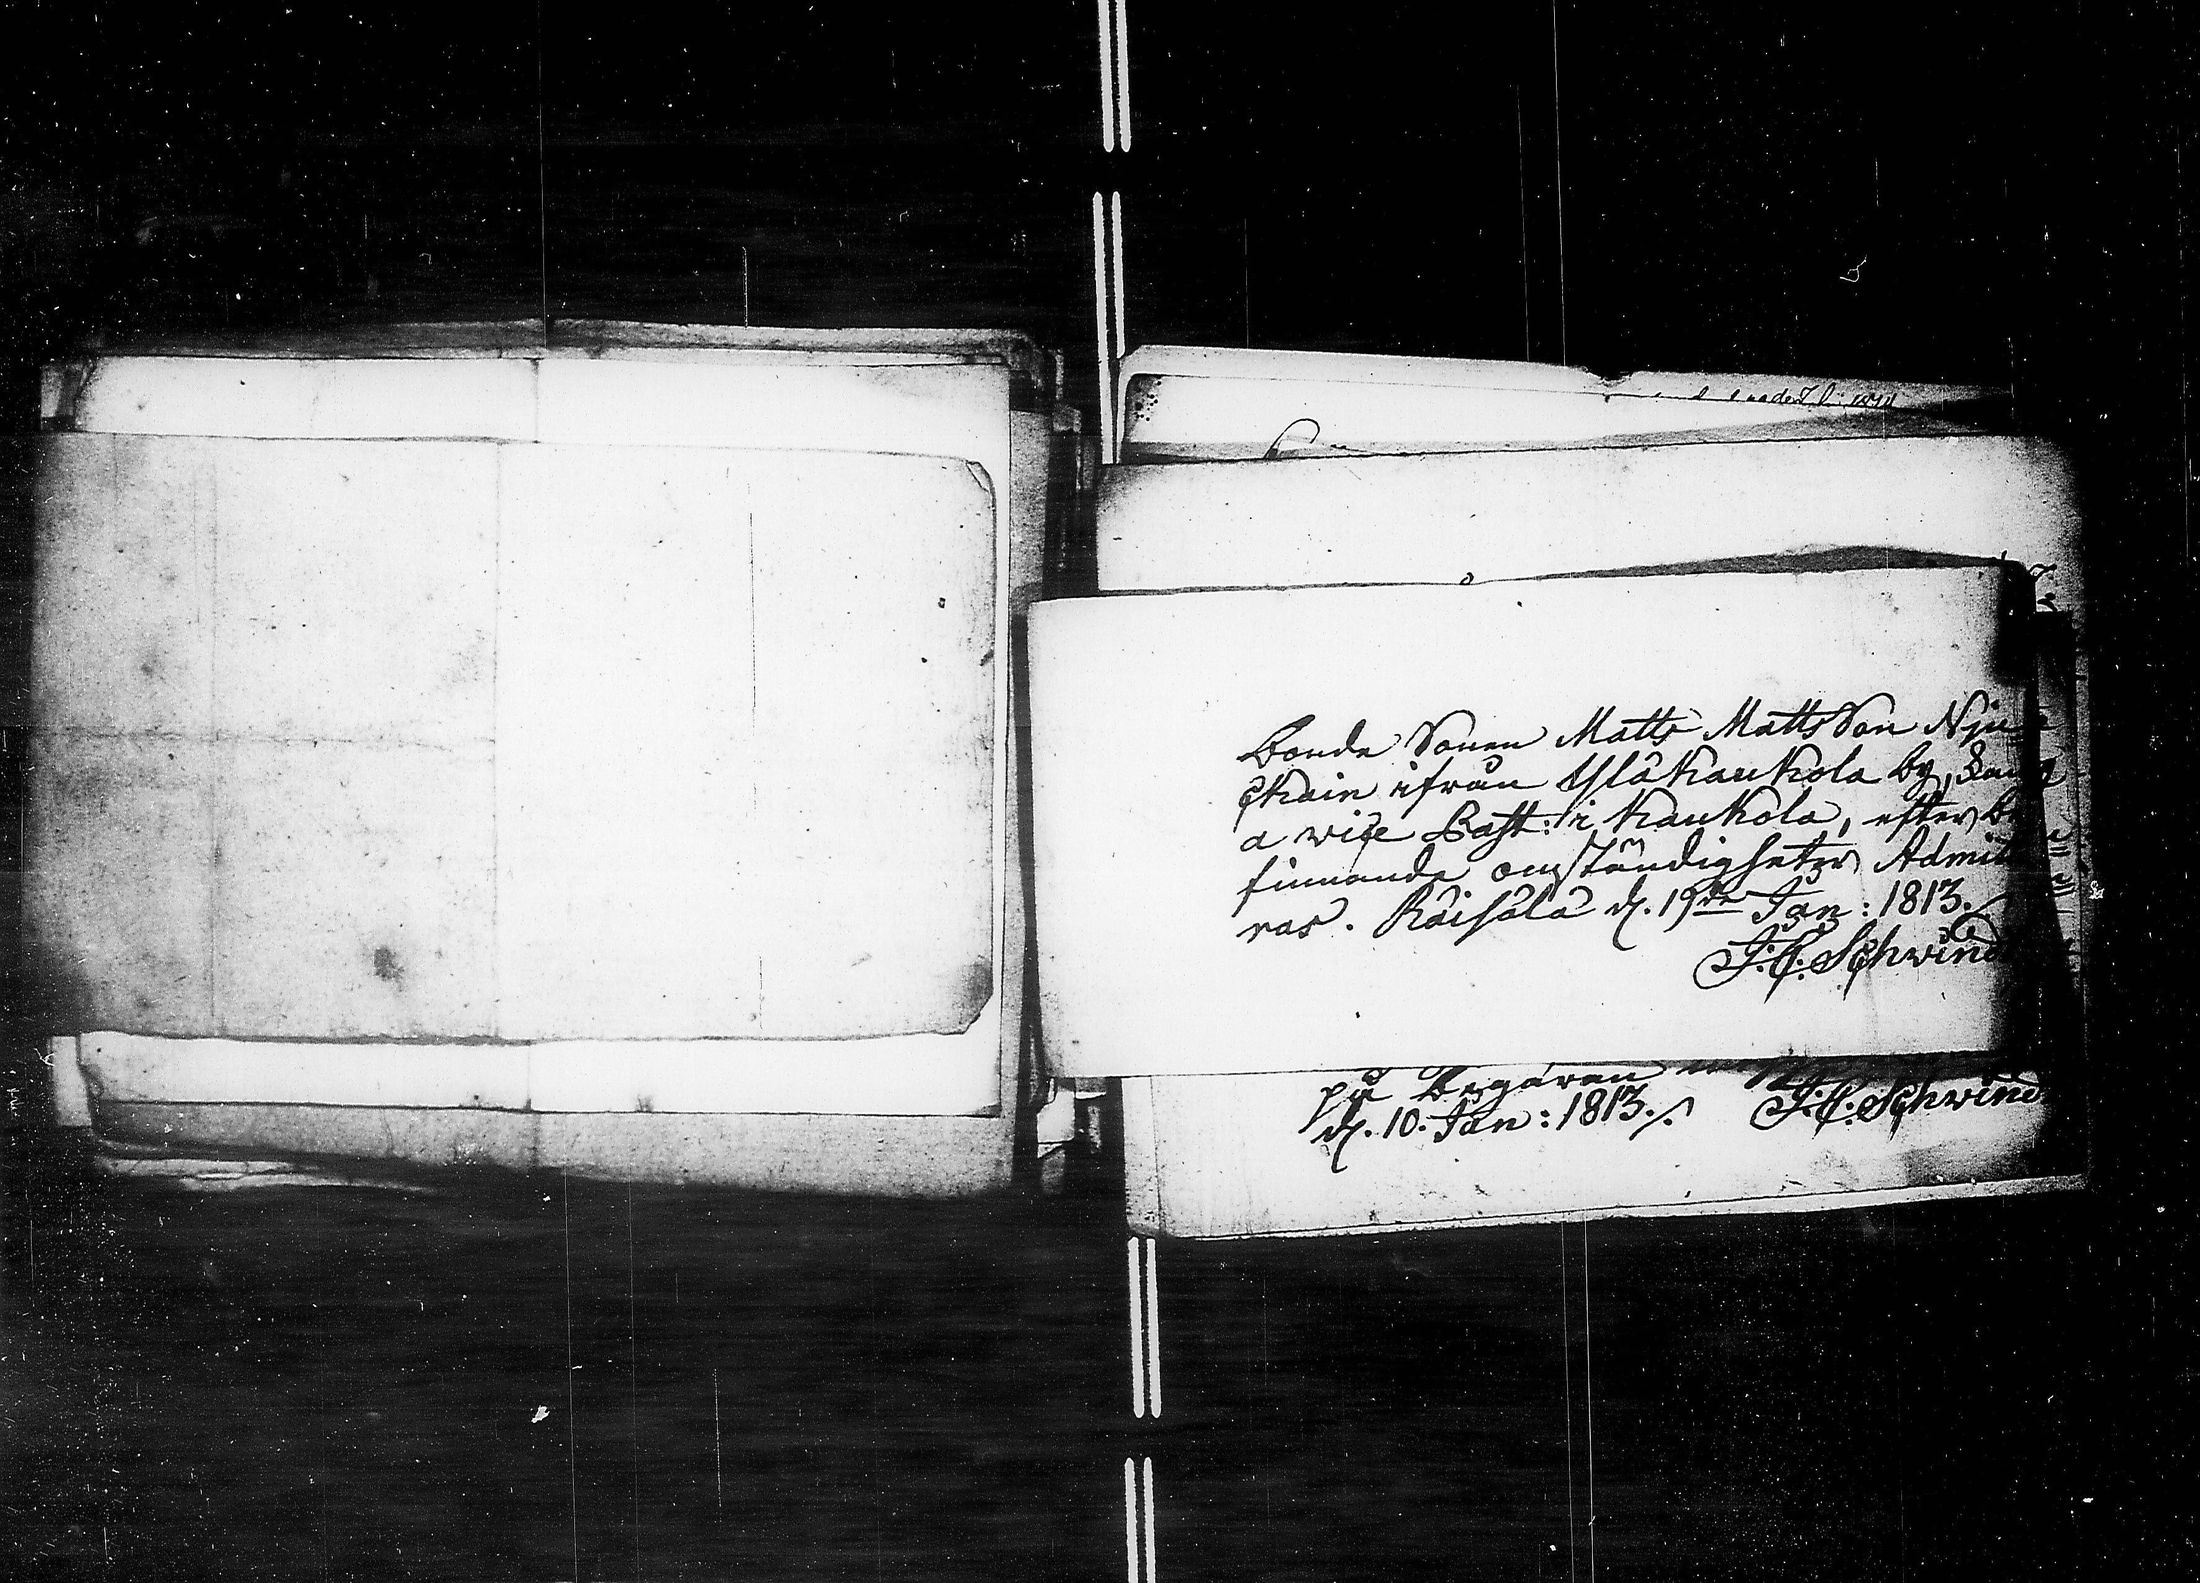 Bonde Sonen Matts MattsSon Nju
skain ifrån Yläkaukola by, kan
a vice Past: i Kaukola, efter be
finnande omständigheter Admit
ras. Räisälä d. 19de Jan: 1813.
J: C: Schwind
på Begäran
d. 10. Jan: 1813./. J: C: Schwind